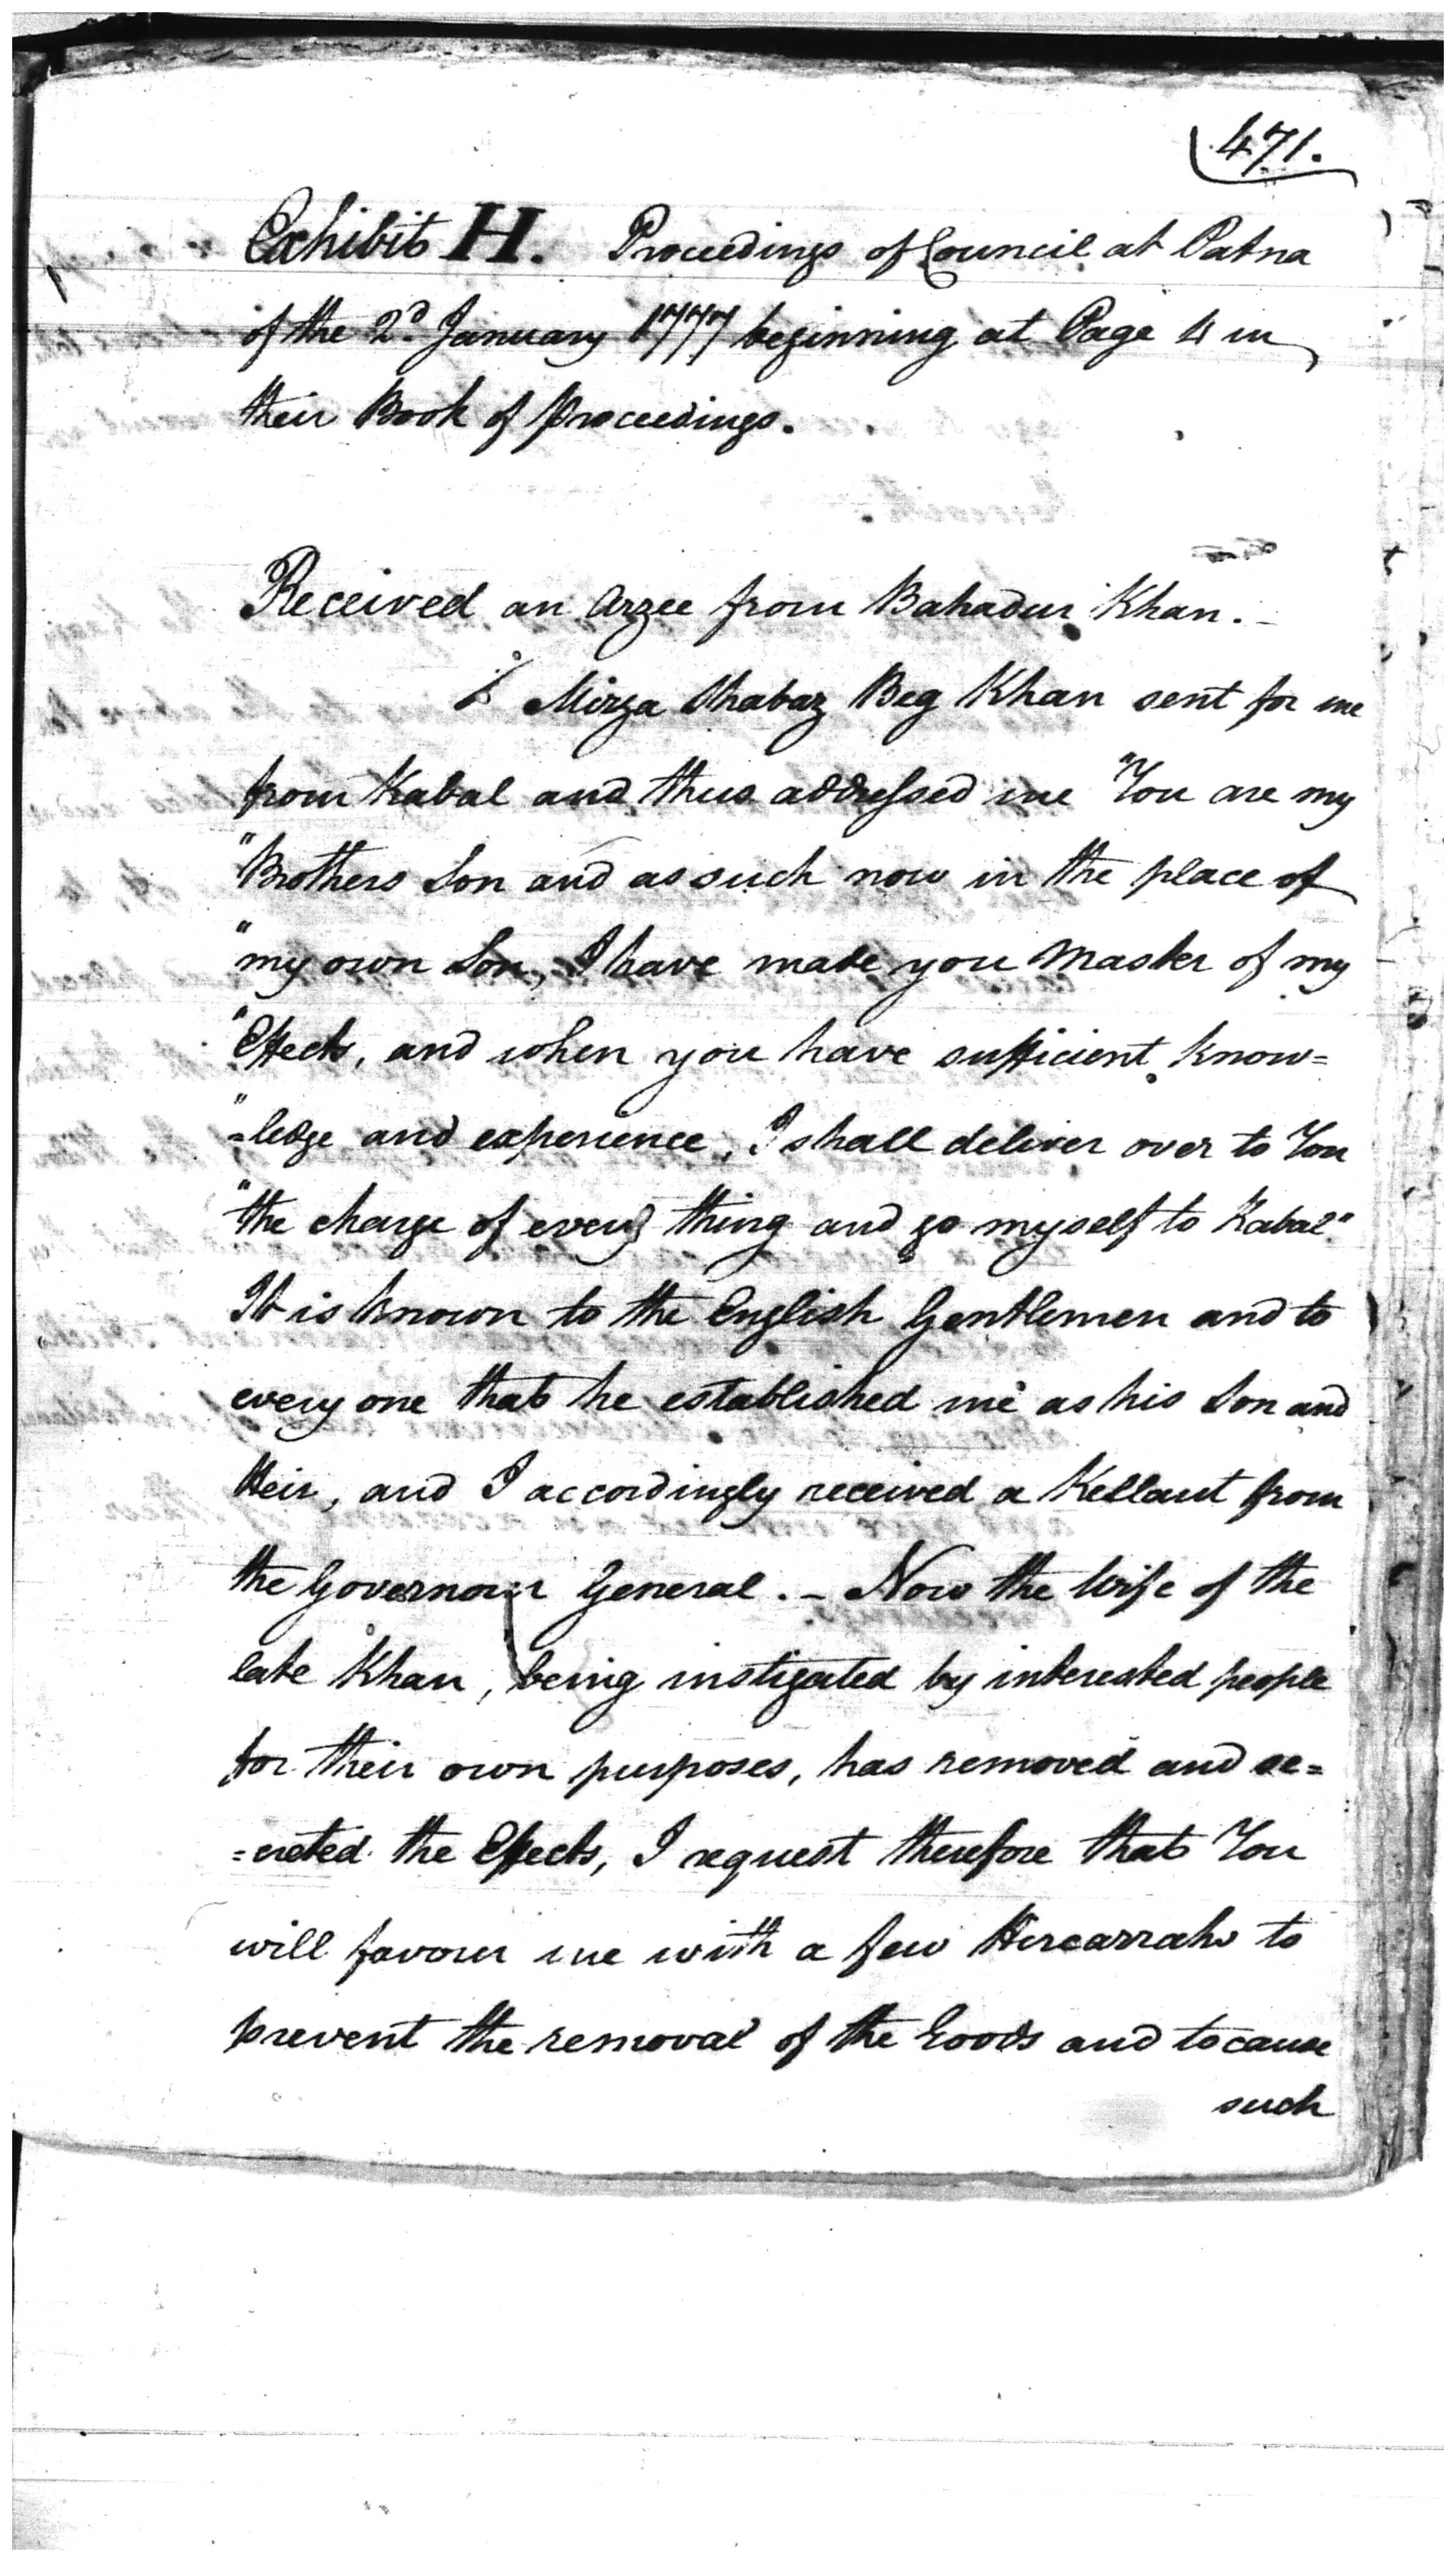 471.
Exhibit H. Proceedings of Council at Patna
of the 2d. January 1777 beginning at Page 4 in
their Book of Proceedings.
Received an Arzee from Bahadur Khan.-
Mirza Shabaz Beg Khan sent for me
from Kabal and thus addressed me "You are my
"Brothers Son and as such now in the place of
"my own Son, I have made you Master of my
"Effects, and when you have sufficient know=
"=ledge and experience, I shall deliver over to You
"the charge of every thing and go myself to Kabal"
It is known to the English Gentlemen and to
every one that he established me as his Son and
Heir, and I accordingly received a Kellaut from
the Governour General.- Now the Wife of the
late Khan, being instigated by interested people
for their own purposes, has removed and se=
=creted the Effects, I request therefore that You
will favour me with a few Hircarrahs to
prevent the removal of the Goods and to cause
such